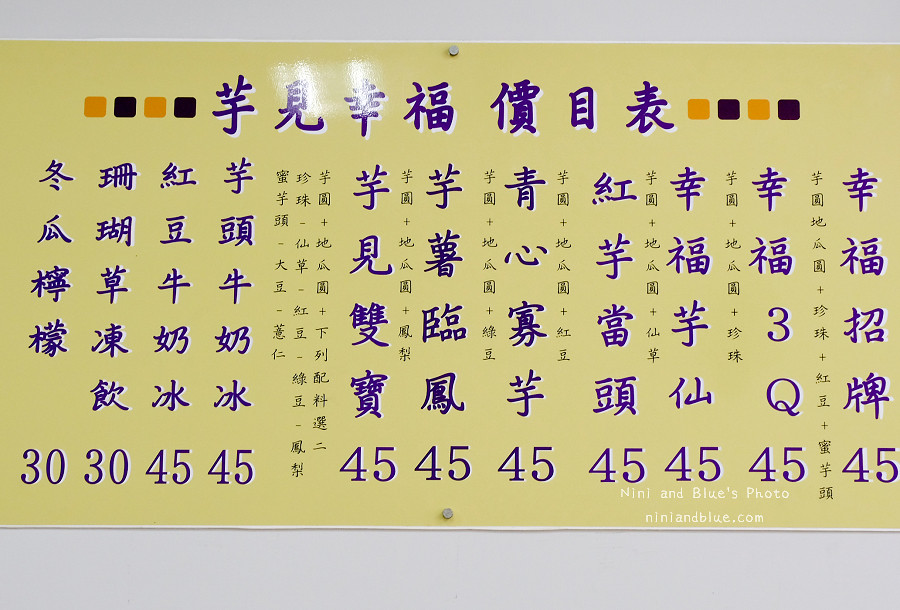 芋見幸福 價目表
幸福招牌 45
芋圓地瓜圓+珍珠+紅豆+蜜芋頭
幸福3Q 45
芋圓+地瓜圓+珍珠
幸福芋仙 45
芋圓+地瓜圓+仙草
紅芋當頭 45
芋圓+地瓜圓+紅豆
青心寡芋 45
芋圓+地瓜圓+綠豆
芋薯臨鳳 45
芋圓+地瓜圓+鳳梨
芋見雙寶 45
芋圓+地瓜圓+下列配料選二
珍珠-仙草-紅豆-綠豆-鳳梨
蜜芋頭-大豆-薏仁
芋頭牛奶冰 45
紅豆牛奶冰 45
珊瑚草凍飲 30
冬瓜檸檬 30
Nini and Blue's Photo
niniandblue.com